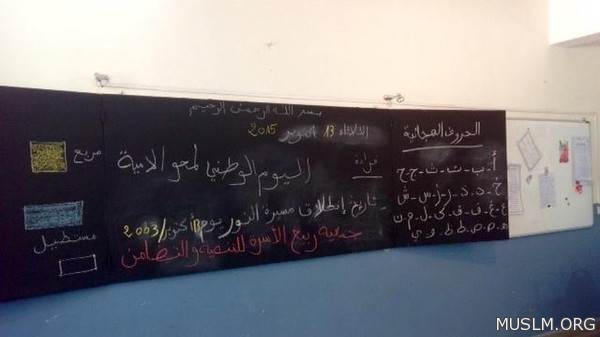 بسم الله الرحمن الرحيم
الثلاثاء 13 أكتوبر 2015
قراءة
اليوم الوطني لمحو الامية
- تاريخ إنطلاق مسيرة النور يوم 13 أكتوبر 2003
جمعية ربيع الأسرة للتنمية والتضامن
مربع
مستطيل
الحروف الهجائية
أ - ب - ت - ث - ج - ح
خ - د - ذ - ر - ز - س - ش
MUSLM.ORG